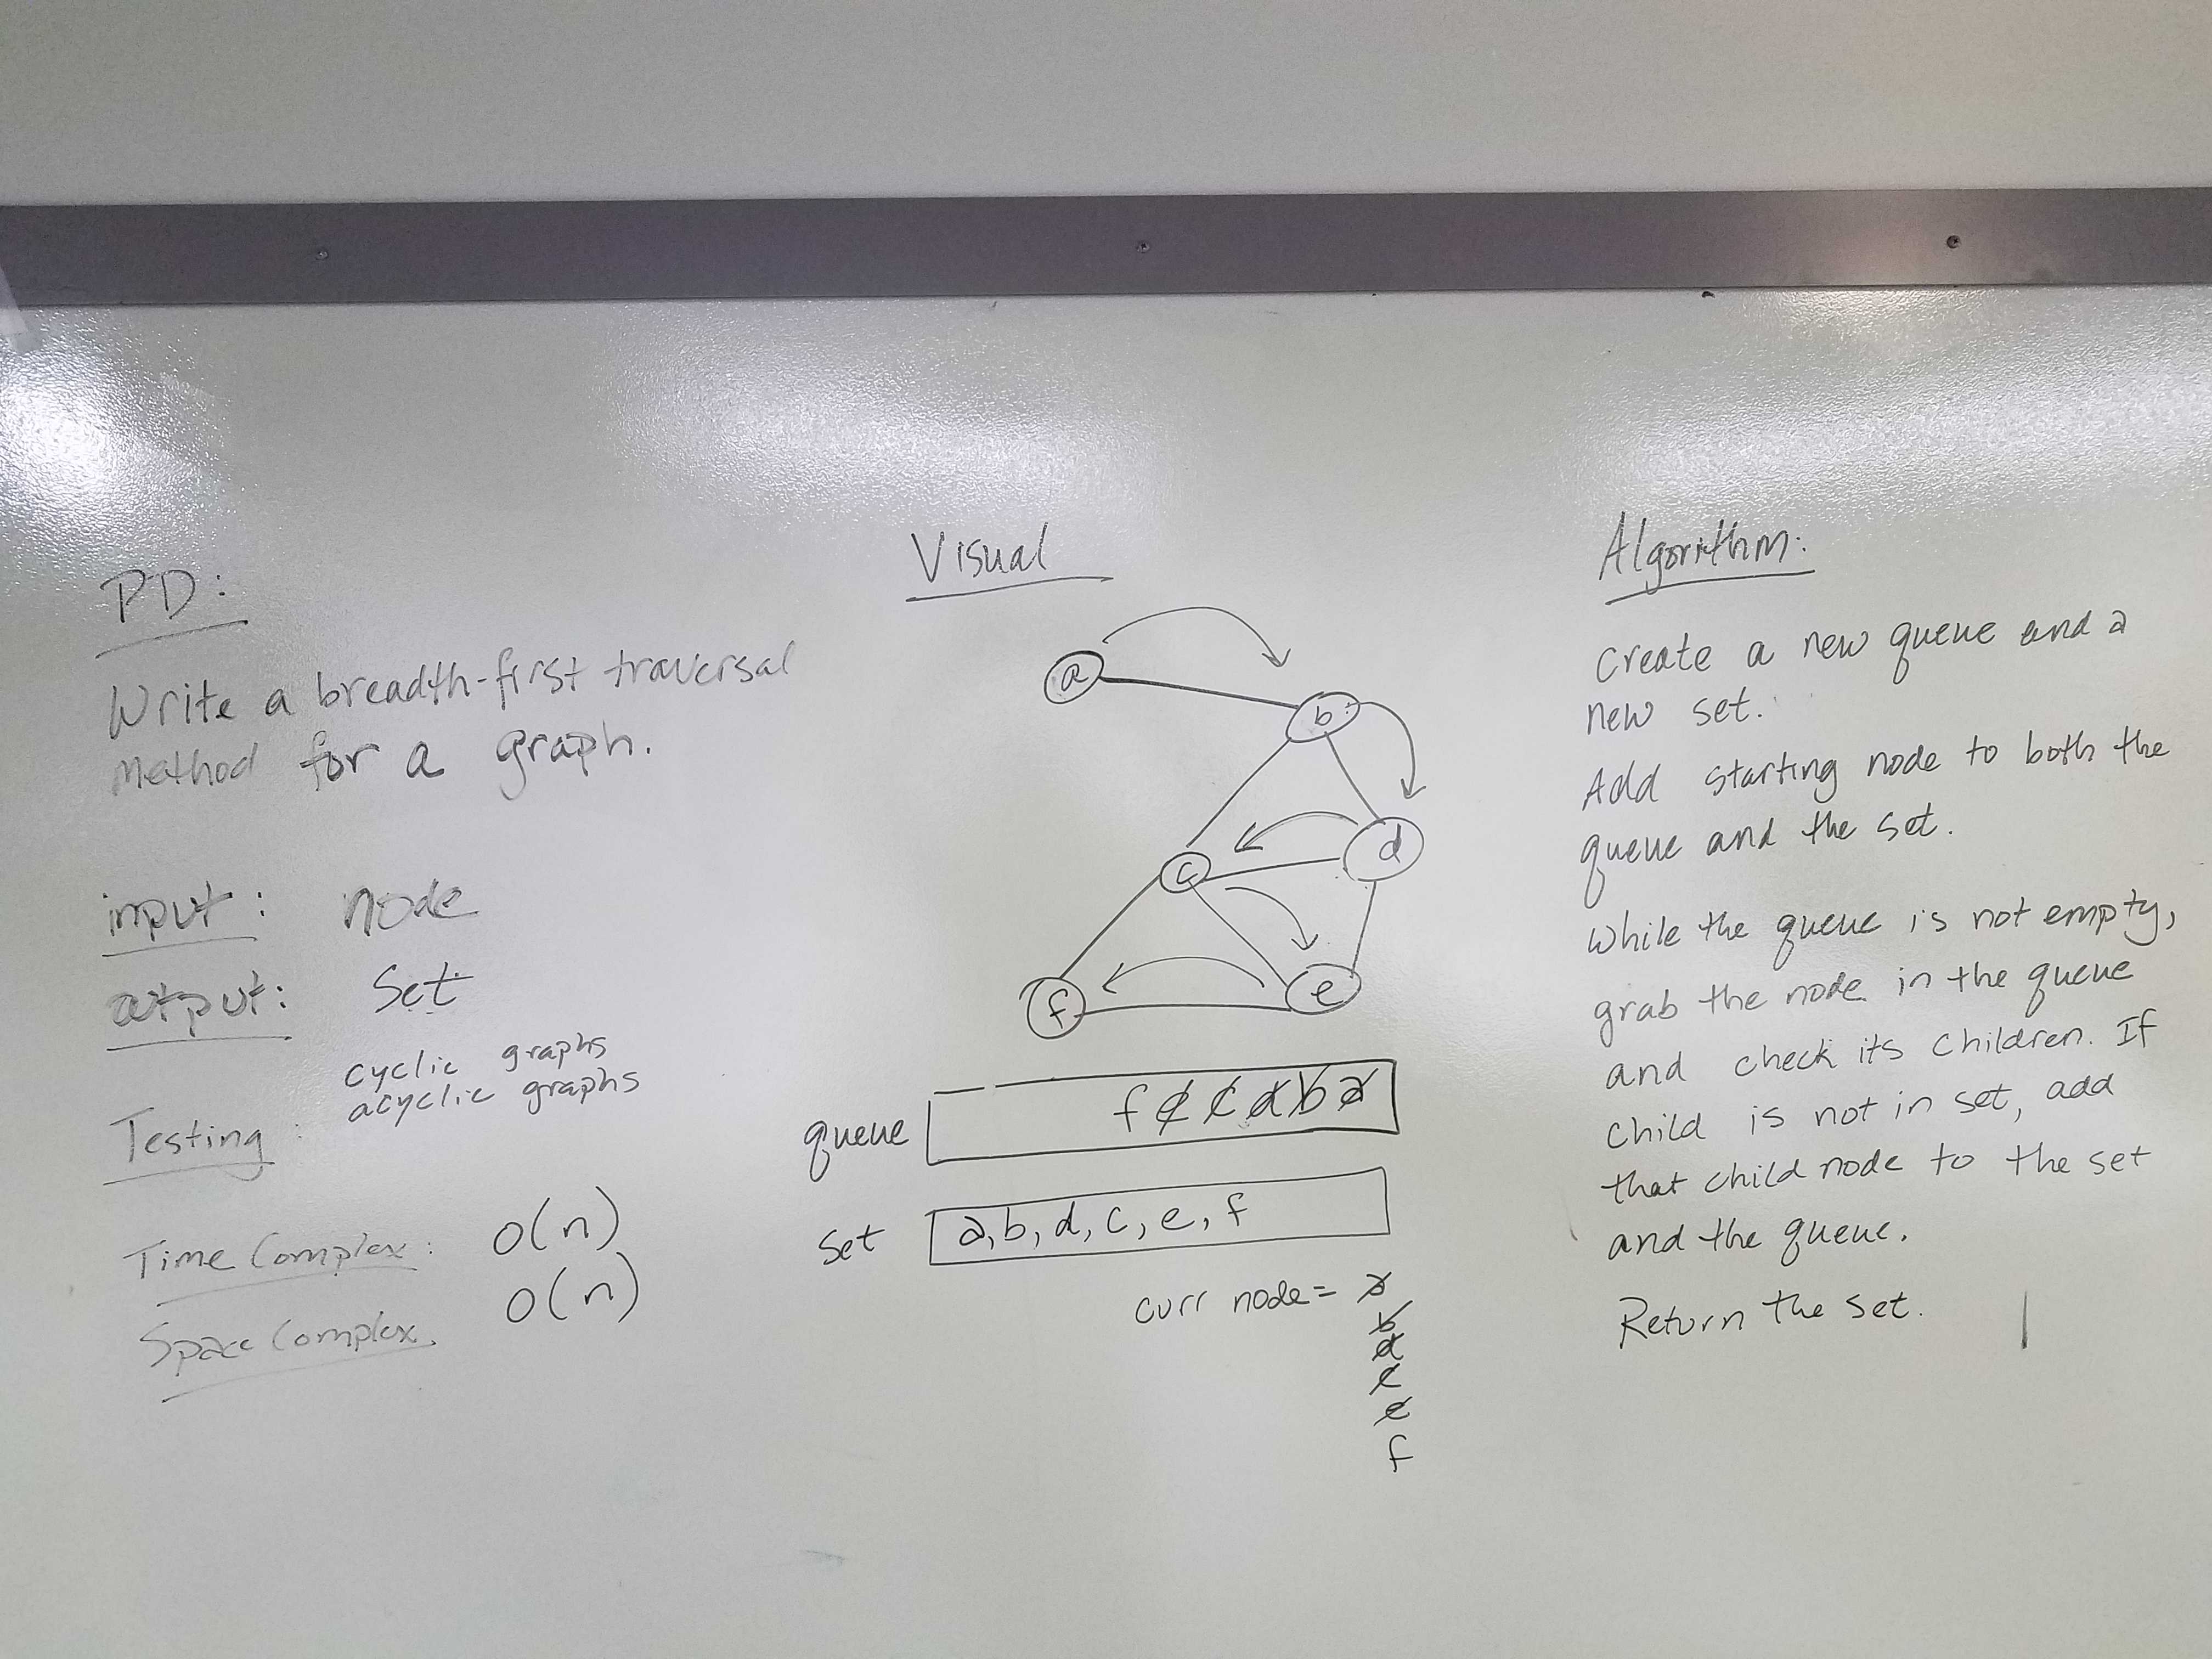 PD:
Write a breadth-first traversal
method for a graph.
input: node
output: Set
cyclic graphs
acyclic graphs
Testing:
Time Complex: O(n)
Space Complex. O(n)
Visual
a
b
d
c
f
e
queue f e c d b a
set a, b, d, c, e, f
curr node = a
b
d
c
e
f
Algorithm:
Create a new queue and a
new set.
Add starting node to both the
queue and the set.
While the queue is not empty,
grab the node in the queue
and check its children. If
child is not in set, add
that child node to the set
and the queue.
Return the set.